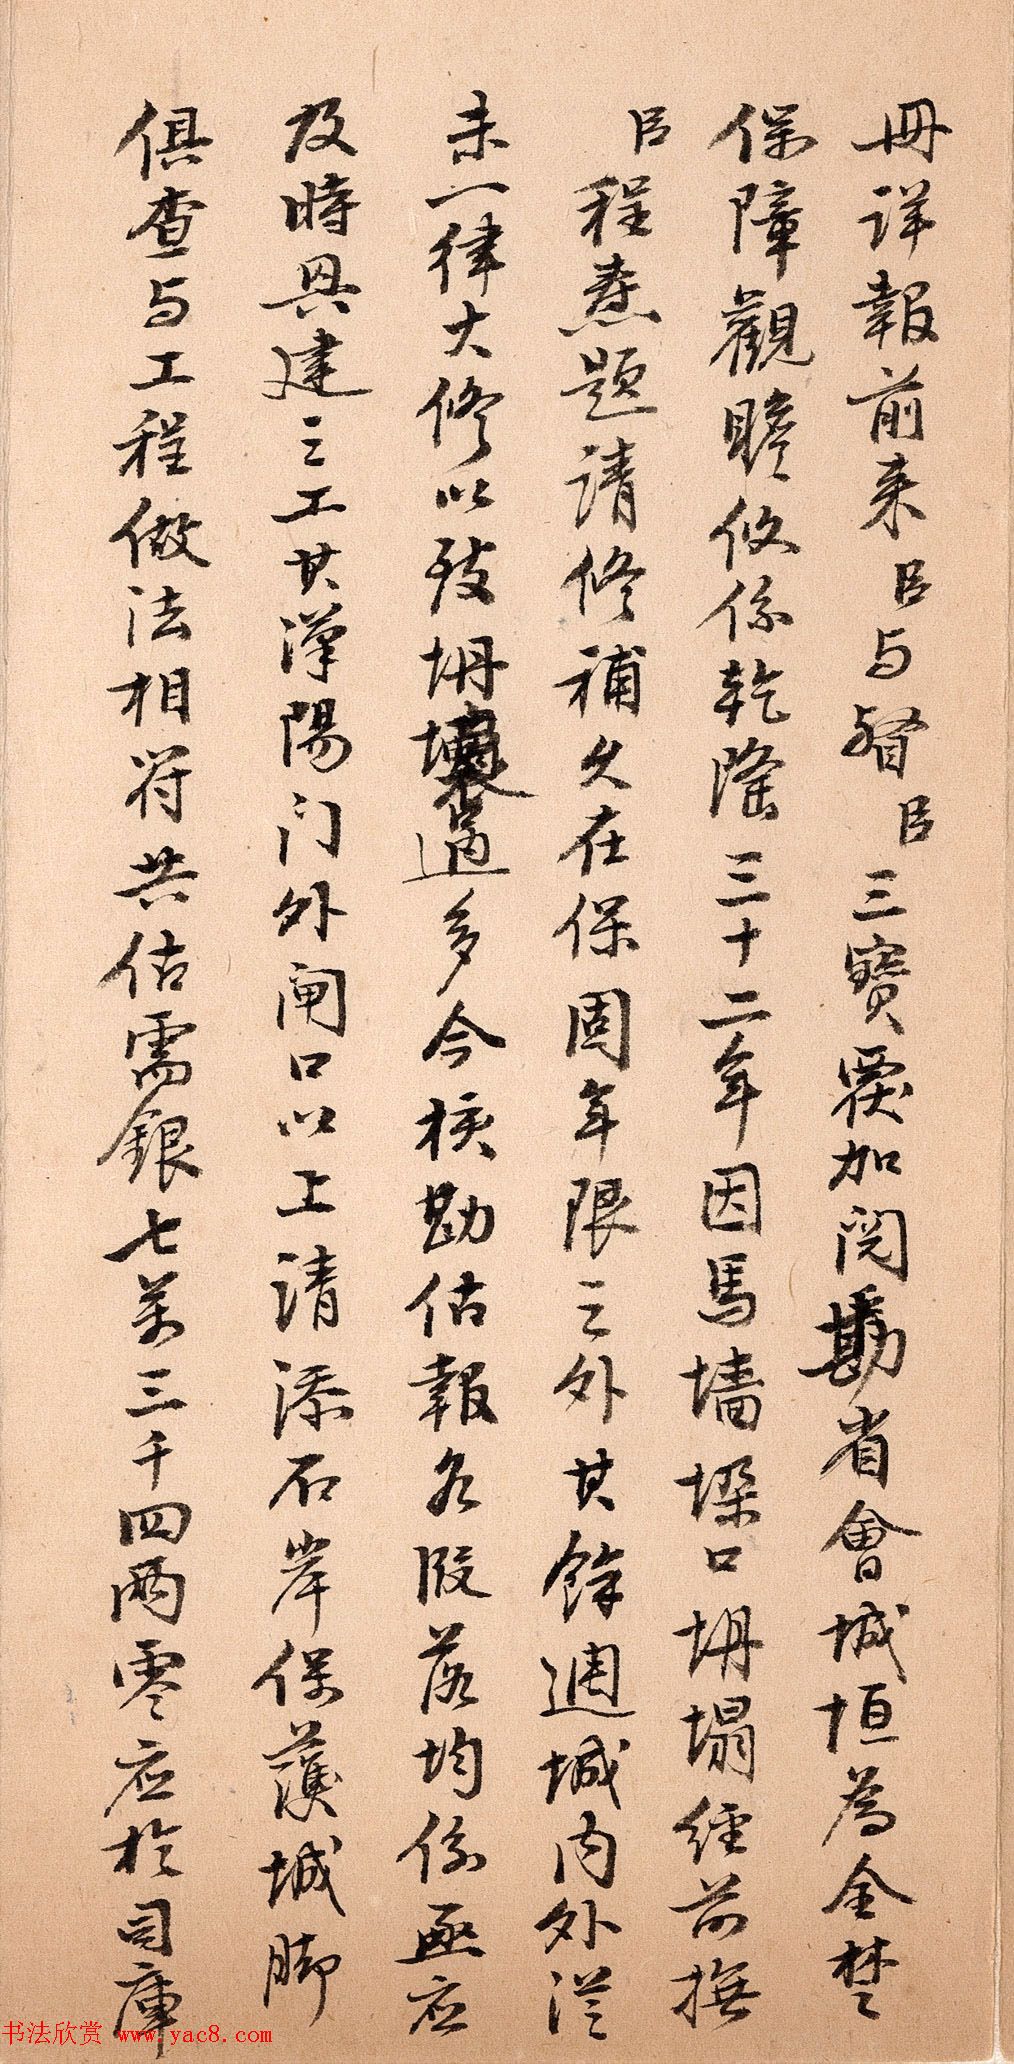 冊详報前来臣与督臣三寳覆加閲勘省會城垣為全楚
保障觀瞻攸係乾隆三十二年因馬墻垜口坍塌經前撫
臣程燾題请修補久在保固年限之外其餘週城内外從
未一律大修以致坍壞過多今核勘估報各段落均係亟应
及時具建之工其漢陽门外闸口以上請添石岸保護城脚
俱查与工程做法相符共估需銀七萬三千四两零应於司庫
书法欣赏 www.yac8.com